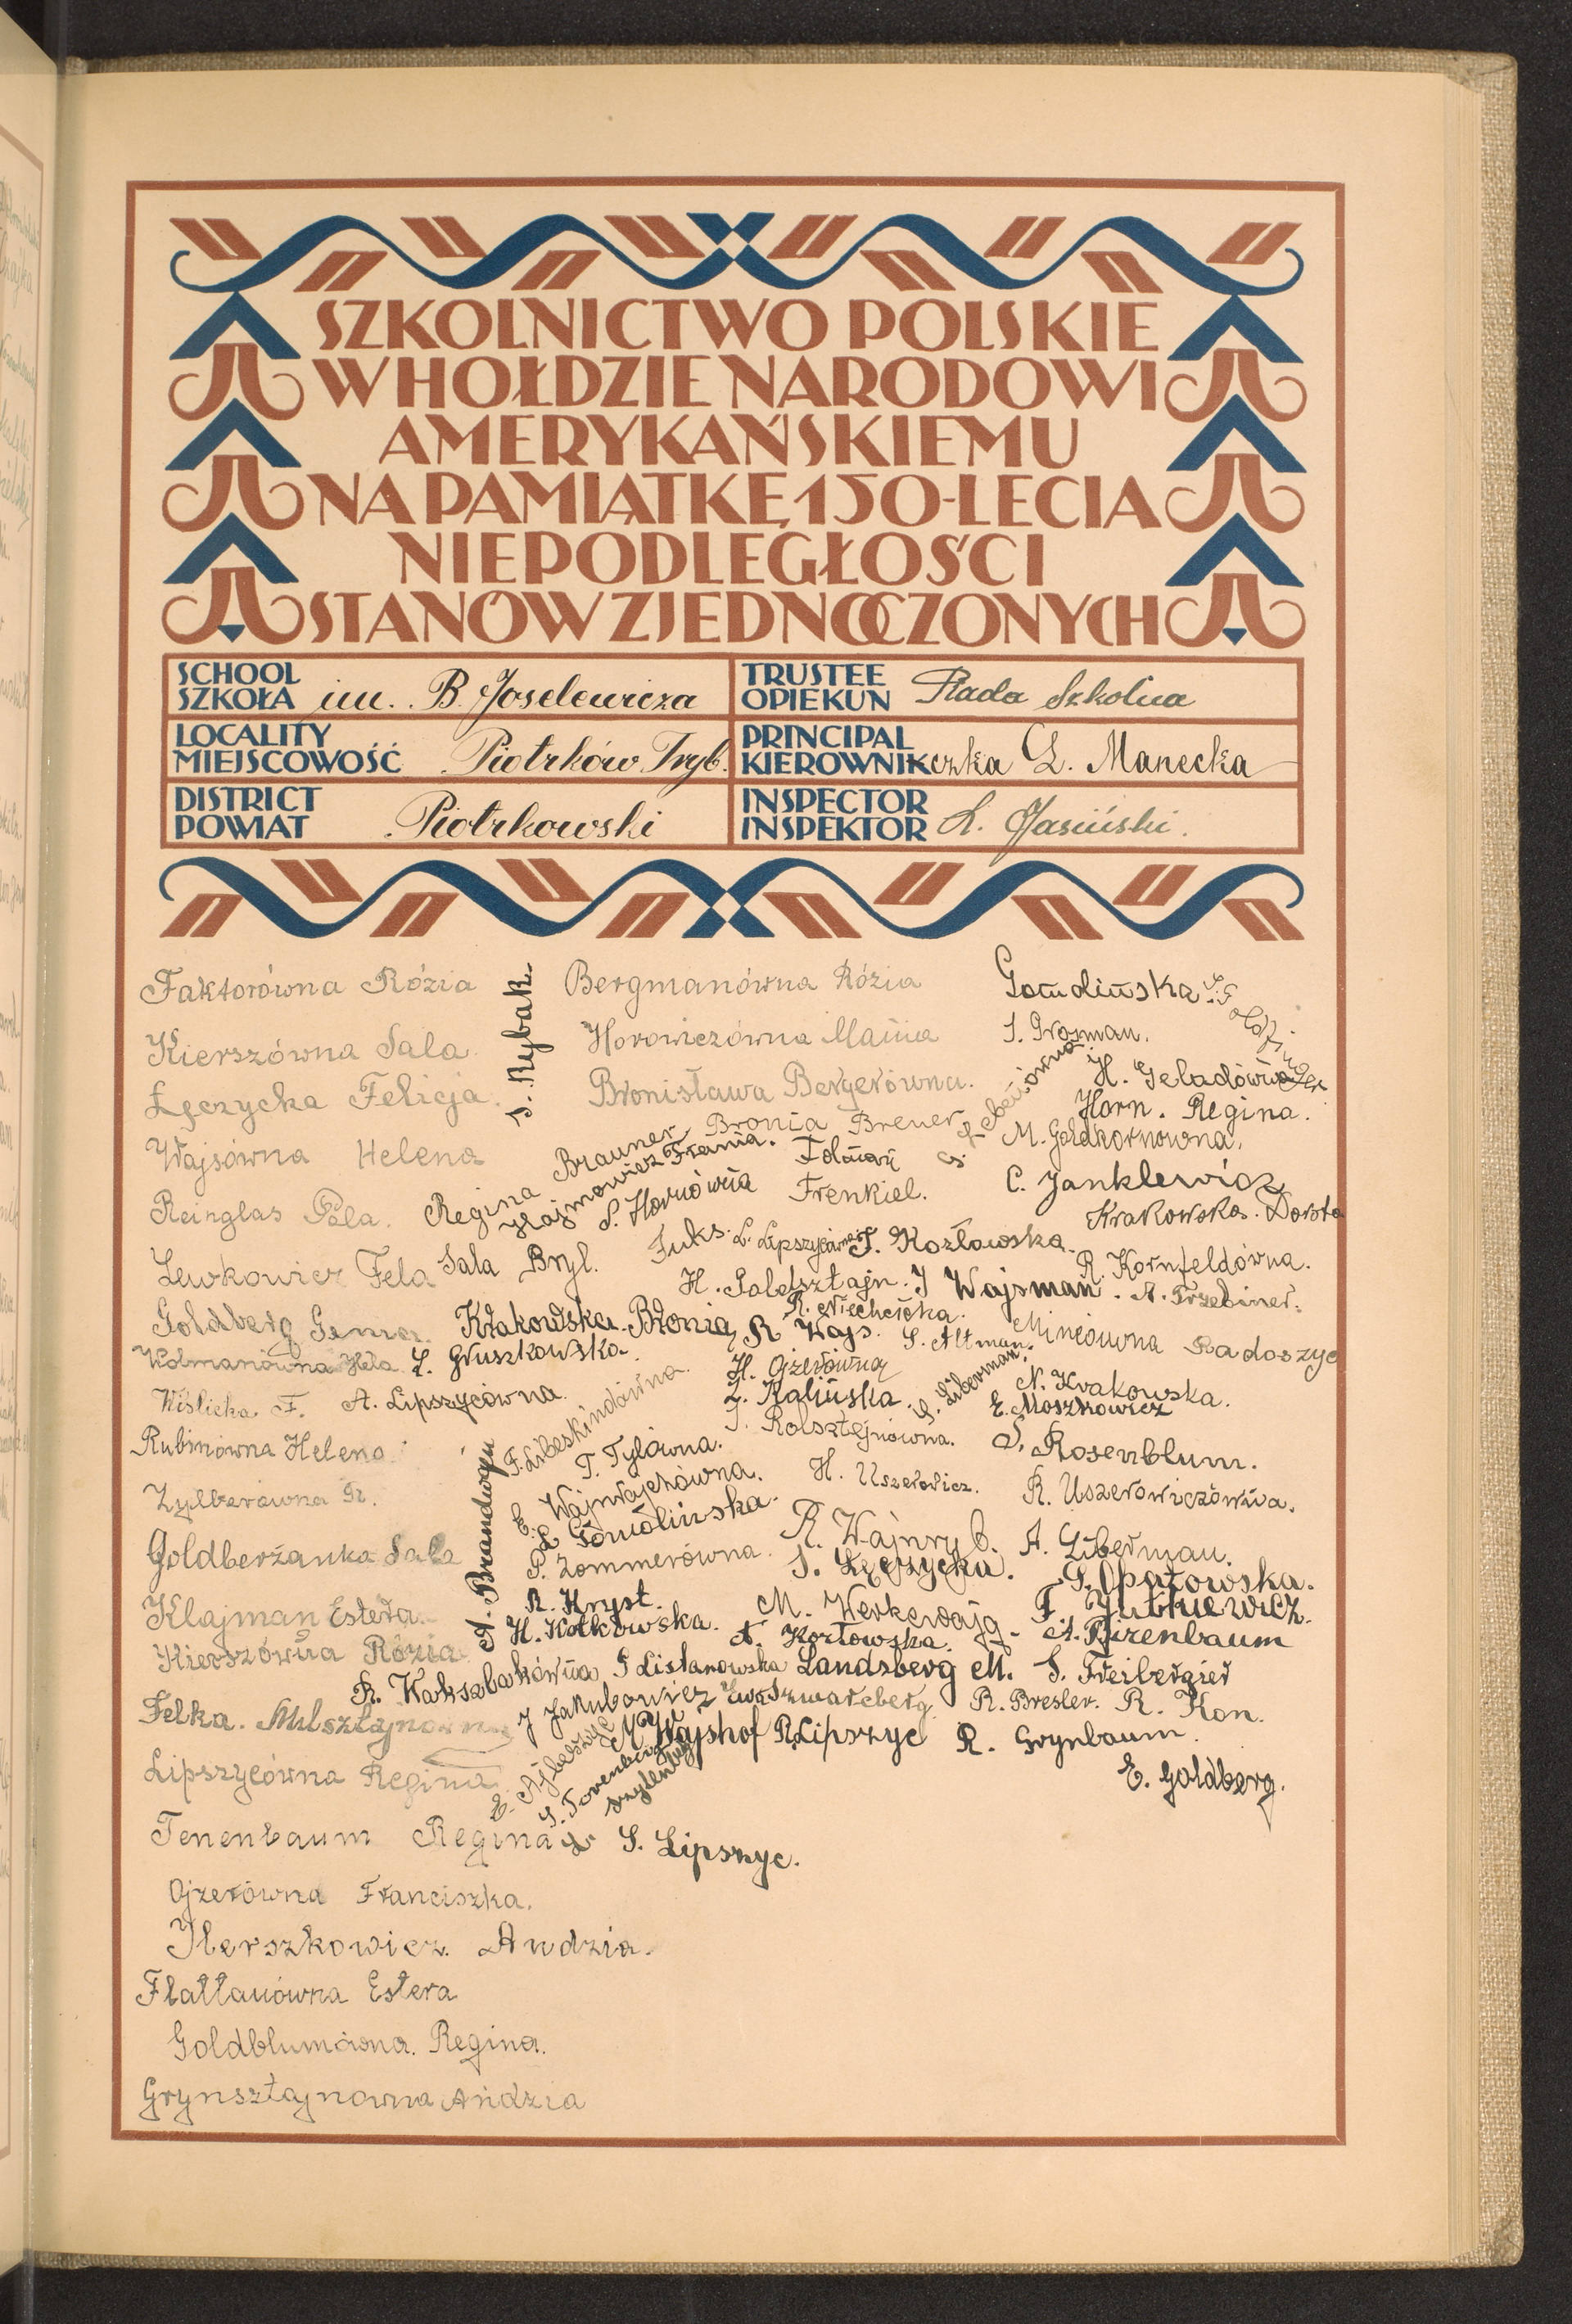 SZKOLNICTWO POLSKIE
W HOŁDZIE NARODOWI
AMERYKAŃSKIEMU
NA PAMIĄTKĘ 150-LECIA
NIEPODLEGŁOŚCI
STANÓW ZJEDNOCZONYCH
SCHOOL
SZKOŁA im. B. Joselewicza
TRUSTEE
OPIEKUN Rada Szkolna
LOCALITY
MIEJSCOWOŚĆ Piotrków Tryb.
PRINCIPAL
KIEROWNIKczka L. Manecka
DISTRICT
POWIAT Piotrkowski
INSPECTOR
INSPEKTOR L. Jasiński.
Faktorówna Rózia
Kierszówna Sala.
Łęczycka Felicja.
Wajsówna Helena
Reinglas Pola.
Lewkowicz Fela
Goldberg Genia.
Wolmanówna Hela.
Wiślicka F.
Rubinówna Helena.
Zylberówna R.
Goldberżanka Sala
Klajman Estera.
Kierszówna Rózia
Felka. Milsztajnówna
Lipszycówna Regina
Tenenbaum Regina
Ojzerówna Franciszka.
Herszkowicz Andzia.
Flattauówna Estera
Goldblumówna. Regina.
Grynsztajnowna Andzia
S. Rybak
Bergmanówna Rózia
Horowiczówna Mania
Bronisława Bergerówna.
Bronia Brener
Regina Brauner
Klajmowicz Frania.
S. Hornówna
Folman
Frenkiel.
Sala Bryl.
Fuks.
L. Lipszycówna
T. Kozłowska.
H. Goldsztajn.
J Wajsman.
Krakowska. Bronia
R. Niechcicka.
R Wajs.
S. Altman.
L. Gruszkowska.
A. Lipszycówna.
H. Ojzerówna
Z. Kalińska.
S. Liberman.
F. Libeskindówna.
J. Rolsztejnówna.
T. Tylówna.
E. Wajnrajchówna.
H. Uszerowicz.
L. Gomolińska.
A. Brandwajn
P. Zommerówna.
R. Wajnryb.
S. Łęczycka.
R. Hryst.
H. Kotkowska.
M. Werkewajg.
A. Kozłowska.
R. Wakszlakówna
S Listanowska
Landsberg M.
J Jakubowicz
Ewa Szwarcberg
M. Wajshof
R. Lipszyc
E. Ajbeszyc
S. Torenberg
L. Szylenberg
S. Lipszyc.
Gomolińska
S. Goldfinger
S. Grosman.
H. Geladówna
Horn. Regina.
M. Goldkornowna.
C. Janklewicz
Krakowska. Dorota
R. Kornfeldówna.
A. Trzebiner.
Mincówna Radoszyc
N. Krakowska.
E. Moszkowicz
S. Rosenblum.
R. Uszerowiczówna.
A. Liberman.
S. Opatowska.
F. Jutkiewicz.
A. Birenbaum
S. Freiberger
R. Bresler.
R. Kon.
R. Grynbaum.
E. Goldberg.